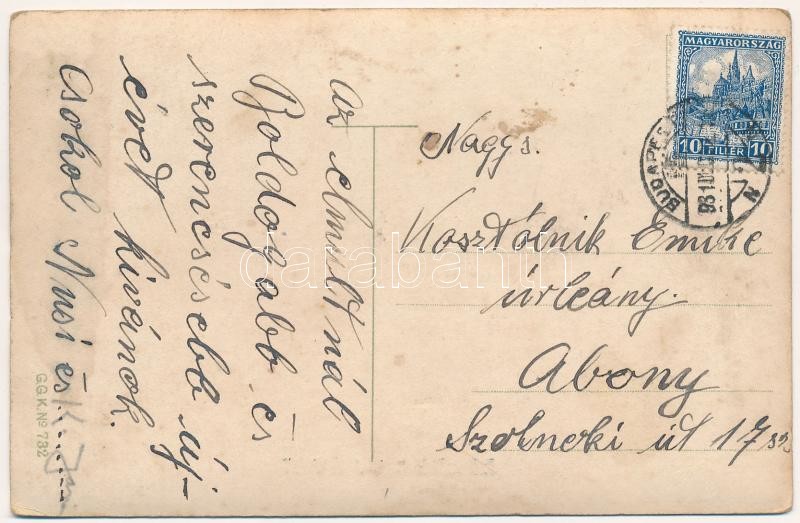 az elmultnál
Boldogabb és
szerencsésebb új-
évet kivánok.
Csokol Nusi és
G.G.K. No 732
MAGYARORSZÁG
10 FILLÉR 10
BUDAPEST
Nagys.
Kosztolnik Emike
úrleány.
Abony
Szolnoki út 17 sz.
darabanth